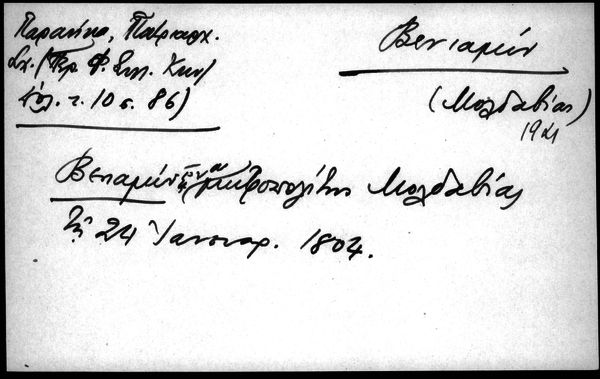 Παρανίκα, Πατριαρχ.
Σχ. (Περ. Φ. Συλ. Κων/
πόλ. τ. 10 σ. 86)
Βενιαμίν
(Μολδαβίας)
19 αι
Βενιαμίν μητροπολίτης Μολδαβίας
τῇ 24 Ἰανουαρ. 1804.